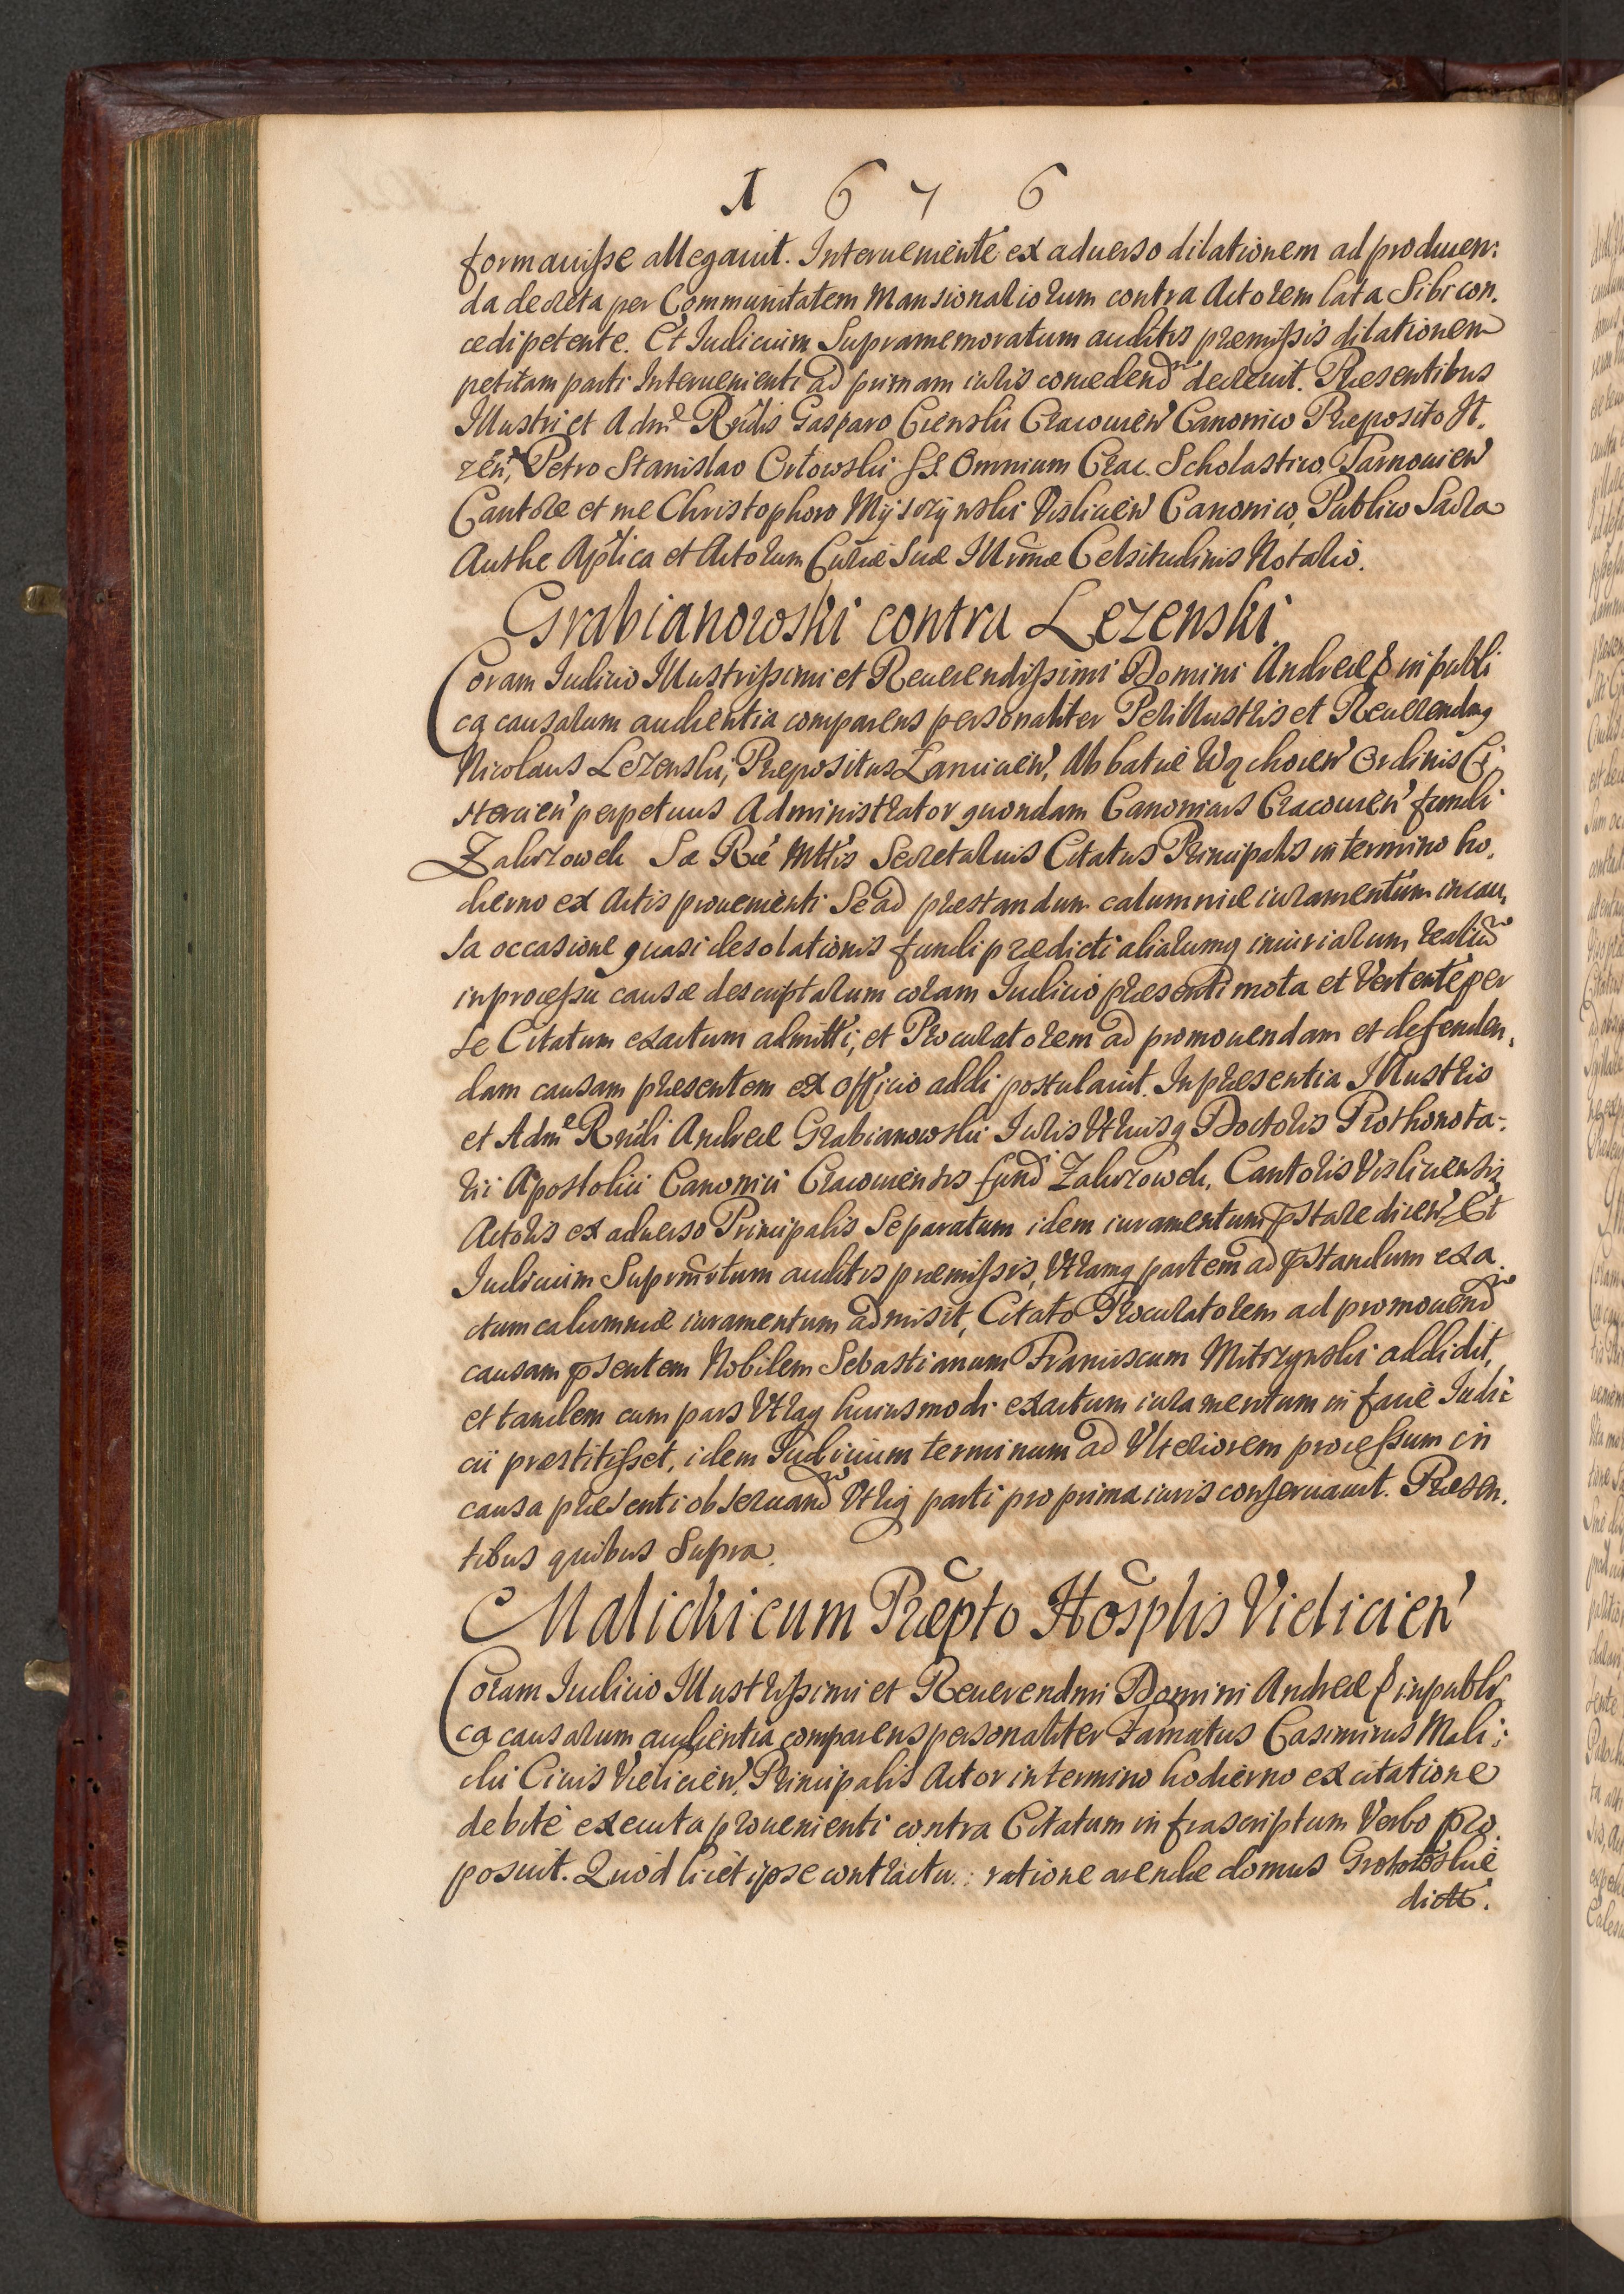 1 6 7 6
formauiſse allegauit. Interueniente ex aduerso dilationem ad producen:
da decreta per Communitatem Mansionariorum contra Actorem lata Sibi con.
cedi petente. Et Iudicium Supramemoratum auditis premiſsis dilationem
petitam parti Interuenienti ad primam iuris concedend decreuit. Presentibus
Illustri et Adm Rndis Gasparo Cienski Cracouień Canonico Preposito
Petro Stanislao Orłowski SS. Omnium Crac. Scholastico Tarnouień
Cantore et me Christophoro Myszynski Vislicień Canonico, Publico Sacra
Authe Aplica et Actorum Curiæ Suæ Illrmæ Celsitudinis Notario.
Grabianowski contra Lezenski.
Coram Iudicio Illustriſsimi et Reuerendiſsimi Domini Andreæ & in publi
ca causarum audientia comparens personaliter Perillustris et Reuerendus
Nicolaus Lezenski, Prepositus Lanciciеń, Abbatiæ Wąchocień Ordinis Ci
sterciеń perpetuus Administrator quondam Canonicus Cracouień fundi
Zakrzowek Sæ Ræ Mttis Secretarius Citatus Principalis in termino ho.
dierno ex Actis prouenienti Se ad præstandum calumniæ iuramentum in cau,
sa occasione quasi desolationis fundi prædicti aliarumq iniuriarum realiũ
in proceſsu causæ descriptarum coram Iudicio præsenti mota et Vertente per
se Citatum exactum admitti, et Procuratorem ad promouendam et defenden,
dam causam præsentem ex officio addi postulauit. In præsentia Illustris
et Adm Rndi Andreæ Grabianowski Iuris Vtriusq Doctoris Prothonota-
rii Apostolici Canonici Cracouiensis fund Zakrzowek, Cantoris Visliciensis
Actoris ex aduerso Principalis Separatum idem iuramentum pstare dicеń Et
Iudicium Suprmtum auditis premiſsis, Vtramq partem ad pstandum exa.
ctum calumniæ iuramentum admisit, Citato Procuratorem ad promouend
causam psentem Nobilem Sebastianum Franciscum Mitrzynski addidit,
et tandem cum pars Vtraq huiusmodi exactum iuramentum in facie Iudi
cii præstitiſset, idem Iudicium terminum ad Vlteriorem proceſsum in
causa præsenti obseruand Vtriq parti pro prima iuris conseruauit. Præsen.
tibus quibus Supra.
Malicki cum Præpto Hosplis Vieliciеń
Coram Iudicio Illustriſsimi et Reuerendmi Domini Andreæ & in publi
ca causarum audientia comparens personaliter Famatus Casimirus Mali:
cki Ciuis Vieliciеń. Principalis Actor in termino hodierno ex citatione
debite executa prouenienti contra Citatum infrascriptum Verbo pro
posuit. Quod licet ipse contractu: ratione arendæ domus
dictæ.